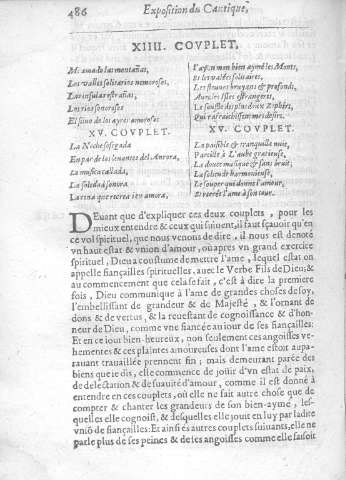 486 Exposition du Cantique,
XIIII. COVPLET,
Mi amado las montañas,
Los valles solitarios nemorosos,
Las insulas estrañas,
Los rios sonorosos
El siluo de los ayres amorosos
XV. COVPLET.
La Noche sosegada
En par de los leuantes del Aurora,
La musica callada,
La soledad sonora
La cena que recrea i en amora,
I'ay en mon bien aymé les Monts,
Et les valdes solitaires,
Les fleuues bruyans & profonds,
Auec les isles estrangeres,
Le souffle des plus doux Zephirs,
Qui rafraischissent mes desirs.
XV. COVPLET.
La paisible & tranquille nuit,
Pareille à L'aube gratieuse,
La douce musique & sans bruit,
La solitude harmonieuse,
Le souper qui donne l'amour,
Et recrée l'ame à son tour.
DEuant que d'expliquer ces deux couplets, pour les
mieux entendre & ceux qui suiuent, il faut sçauoir qu'en
ce vol spirituel, que nous venons de dire, il nous est denoté
vn haut estat & vnion d'amour, ou apres vn grand exercice
spirituel, Dieu a coustume de mettre l'ame, lequel estat on
appelle fiançailles spirituelles, auec le Verbe Fils de Dieu; &
au commencement que cela se fait, c'est à dire la premiere
fois, Dieu communique à l'ame de grandes choses de soy,
l'embellissant de grandeur & de Majesté, & l'ornant de
dons & de vertus, & la reuestant de cognoissance & d'hon-
neur de Dieu, comme vne fiancée au iour de ses fiançailles:
Et en ce iour bien-heureux, non seulement ces angoisses ve-
hementes & ces plaintes amoureuses dont l'ame estoit aupa-
rauant trauaillée prennent fin; mais demeurant parée des
biens que ie dis, elle commence de joüir d'vn estat de paix,
de delectation & de suauité d'amour, comme il est donné à
entendre en ces couplets, où elle ne fait autre chose que de
compter & chanter les grandeurs de son bien-aymé, les-
quelles elle cognoist, & desquelles elle jouit en luy par ladite
vniõ de fiançailles: Et ainsi és autres couplets suiuans, elle ne
parle plus de ses peines & de ses angoisses comme elle faisoit